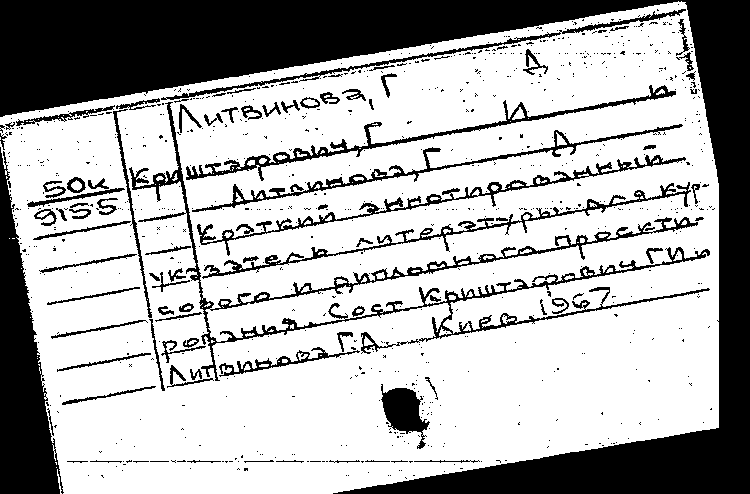 Литвинова, Г Д
50к
9155
Криштафович, Г И и
Литвинова, Г Д
Краткий аннотированный
указатель литературы для кур-
сового и дипломного проекти-
рования. Сост Криштафович Г.И и
Литвинова Г.Д Киев, 1967